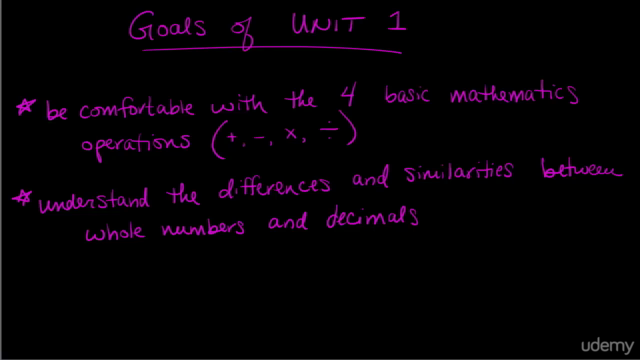 Goals of UNIT 1
* be comfortable with the 4 basic mathematics
operations (+, -, ×, ÷)
* understand the differences and similarities between
whole numbers and decimals
udemy